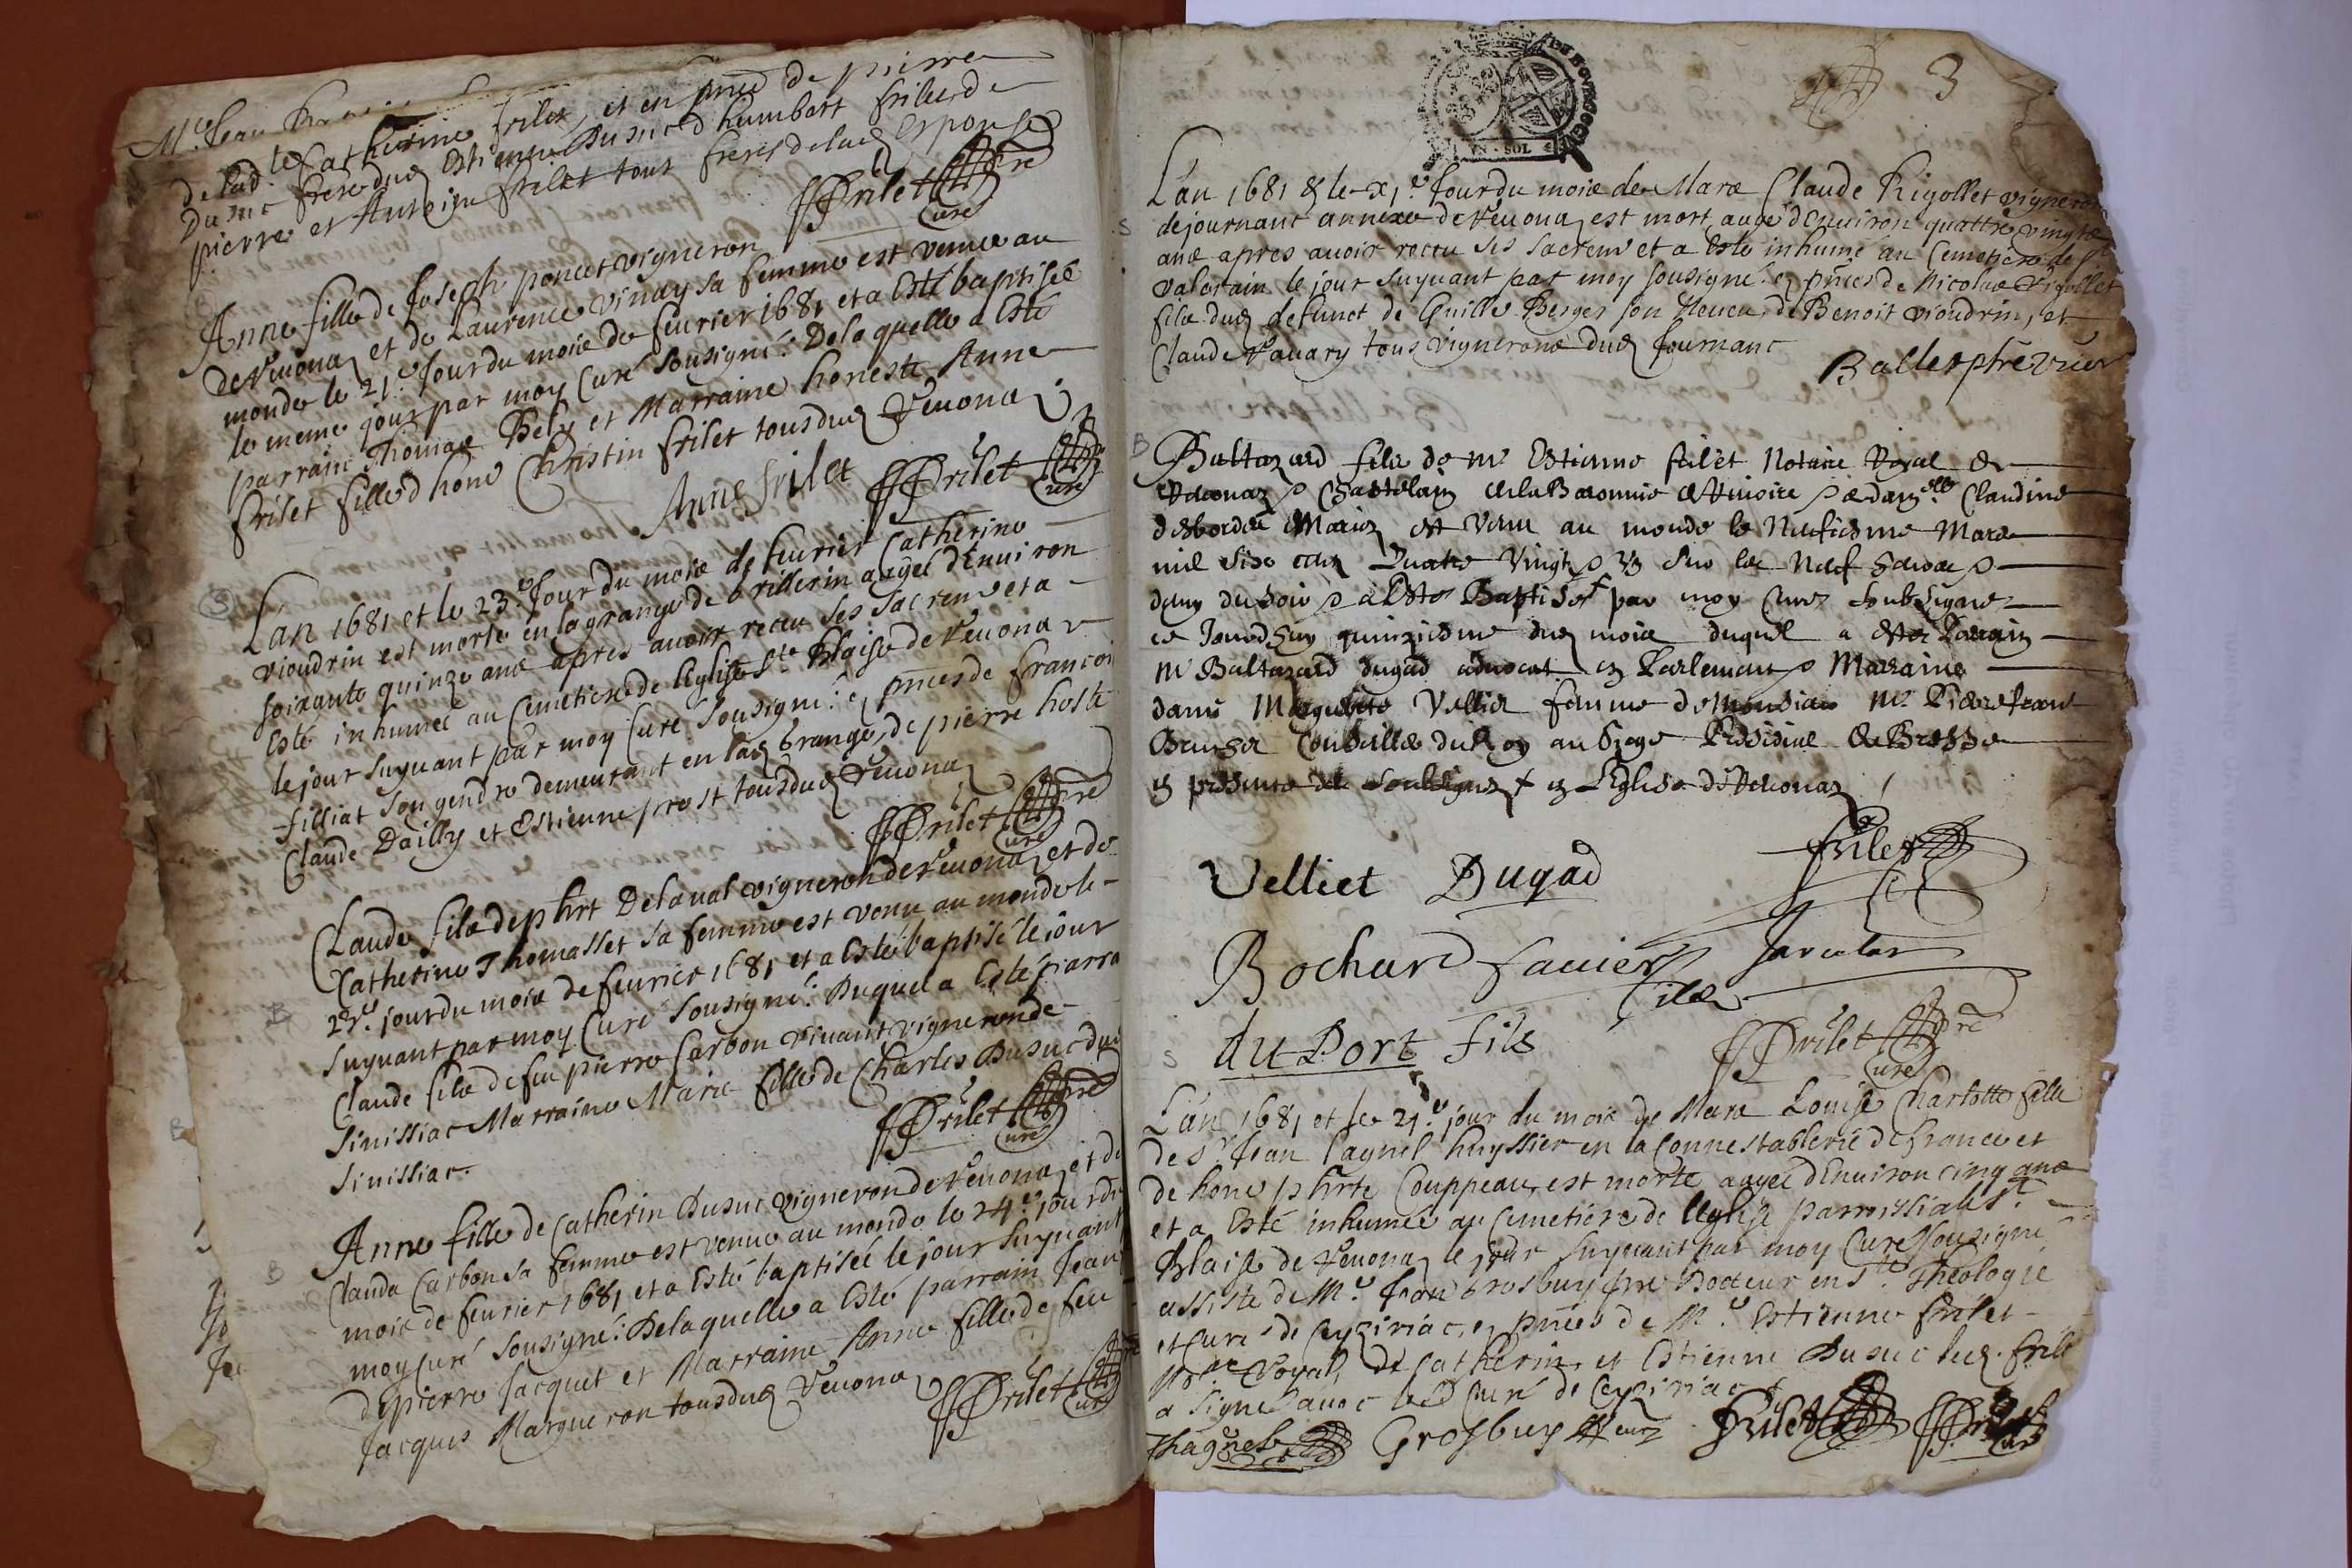 Mre Jean
de lad. lle Catherine frilet, et en pnce de pierre
Dusuc frere dud Estienne Dusuc d humbert frilet de
pierre et Antoine frilet tous freres de lad Espouse
FFrilet pre
Curé
Anne fille de Joseph poncet vigneron
de Reuona et de Laurence vinay sa femme est venue au
monde le 21e Jour du mois de feurier 1681 et a Esté baptisée
le meme jour par moy Curé sousigné: De laquelle a Esté
parrain Thomas Bely et Marraine honeste Anne
frilet fille d hono Christin frilet tous dud Reuona
Anne frilet FFrilet pre
Curé
Lan 1681 et le 23e Jour du mois de feurier Catherine
vioudrin est morte en la grange de brillerin aagée d'Enuiron
soixante quinze ans apres auoir receu ses sacremt et a
Esté inhumée au Cemetiere de l'Eglise ste Blaise de Reuona
le jour suyuant par moy Curé sousigné: e pnces de francoi
filliat son gendre demeurant en lad Grange, de pierre hoste
Claude Dailly et Estienne prost tous dud Reuona
FFrilet pre
Curé
Claude fils de phrt Delaual vigneron de Reuona et de
Catherine Thomasset sa femme est venu au monde le
jour du mois de feurier 1681 et a Esté baptisé le jour
suyuant par moy Curé sousigné: Duquel a Esté parra
Claude fils de feu pierre Carbon viuant vigneron de
Sinissiac Marraine Marie fille de Charles Dusuc dud
Sinissiac.
FFrilet pre
Curé
Anne fille de Catherin Dusuc vigneron de Reuona et de
Clauda Carbon sa femme est venue au monde le 24e jour du
mois de feurier 1681 et a Esté baptisée le jour suyuant
moy Curé sousigné: De laquelle a Esté parrain Jean
de pierre Jacquet et Marraine Anne fille de feu
Jacques Margueron tous dud Reuona
FFrilet pre
Curé
VN · SOL
3
Lan 1681 & le x1e Jour du mois de Mars Claude Rigollet vigneron
de journanc annexe de Reuona est mort aagé d'Enuiron quattre vingts
ans apres auoir receu ses sacremt et a Esté inhumé au Cemetiere de st
valerain le jour suyuant par moy sousigné: e pnces de Nicolas Rigollet
fils dud defunct de Guille Berger son Neueu, de Benoit vioudrin, et
Claude Rauary tous vignerons dud Journanc
Ballet ptre vicr
Baltazard fils de mr Estienne frilet Notaire Royal de
Reuonaz & Chastelain de la Baronnie & damlle Claudine
desbordes Maries est venu au monde le Neufiesme Mars
mil sixs cens Quatre Vingt & Vn sur les Neuf heures &
demy du soir & a Esté Baptisé par moy Curé soubsigné
ce Jourdhuy quinziesme dud mois duquel a esté Parrain
mr Baltazard dugad aduocat en Parlement & Marraine
dame Marguerite Velliet femme de Monsieur Mr
Conseiller du Roy au siege Presidial de Bresse
en presence des soubsignes & en l'Eglise de Reuonaz
Velliet Dugad frilet
Bochard fauier Jarcelat
fils
du Port fils FFrilet pre
Curé
Lan 1681 et le 21e jour du mois de Mars Louise Charlotte fille
de Sr Jean Cagnel huyssier en la Connestablerie de france et
de hone phrte Couppeau, est morte aagée d'Enuiron cinq ans
et a Esté inhumée au Cemetiere de l'Eglise parroissiale st
Blaise de Reuonaz le jour suyuant par moy Curé sousigné
assisté de Mre Jean Grosbuy pre Docteur en ste Theologie
et Curé de Ceyziriac, e pnces de Mre Estienne frilet
Royal, de Catherin et Estienne Dusuc led. frilet
a signé auec led Curé de Ceyziriac
Grosbuy frilet FFrilet
Curé